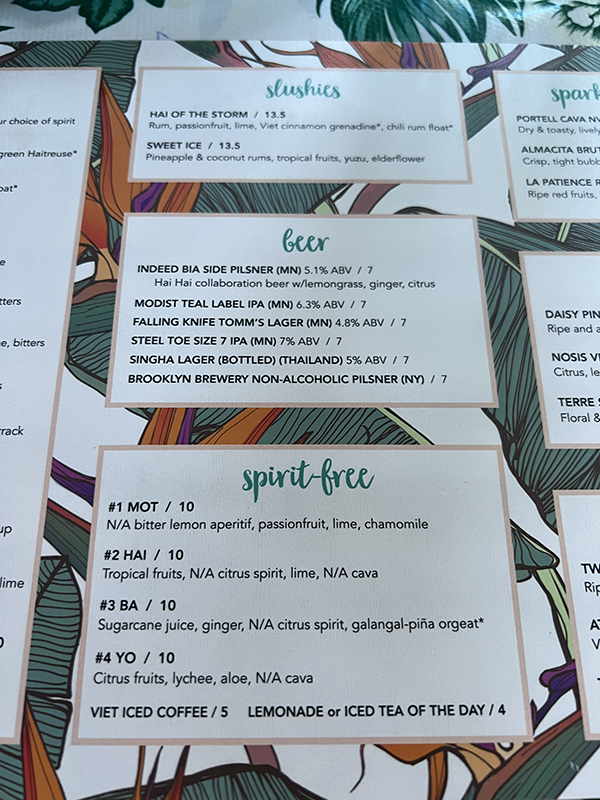 ur choice of spirit
green Haitreuse*
oat*
e
tters
ne, bitters
s
rrack
up
lime
slushies
HAI OF THE STORM / 13.5
Rum, passionfruit, lime, Viet cinnamon grenadine*, chili rum float*
SWEET ICE / 13.5
Pineapple & coconut rums, tropical fruits, yuzu, elderflower
beer
INDEED BIA SIDE PILSNER (MN) 5.1% ABV / 7
Hai Hai collaboration beer w/lemongrass, ginger, citrus
MODIST TEAL LABEL IPA (MN) 6.3% ABV / 7
FALLING KNIFE TOMM'S LAGER (MN) 4.8% ABV / 7
STEEL TOE SIZE 7 IPA (MN) 7% ABV / 7
SINGHA LAGER (BOTTLED) (THAILAND) 5% ABV / 7
BROOKLYN BREWERY NON-ALCOHOLIC PILSNER (NY) / 7
spirit-free
#1 MOT / 10
N/A bitter lemon aperitif, passionfruit, lime, chamomile
#2 HAI / 10
Tropical fruits, N/A citrus spirit, lime, N/A cava
#3 BA / 10
Sugarcane juice, ginger, N/A citrus spirit, galangal-piña orgeat*
#4 YO / 10
Citrus fruits, lychee, aloe, N/A cava
VIET ICED COFFEE / 5 LEMONADE or ICED TEA OF THE DAY / 4
spark
PORTELL CAVA NV
Dry & toasty, lively
ALMACITA BRUT
Crisp, tight bubb
LA PATIENCE R
Ripe red fruits,
DAISY PIN
Ripe and a
NOSIS VE
Citrus, le
TERRE S
Floral &
TW
Rip
AT
V